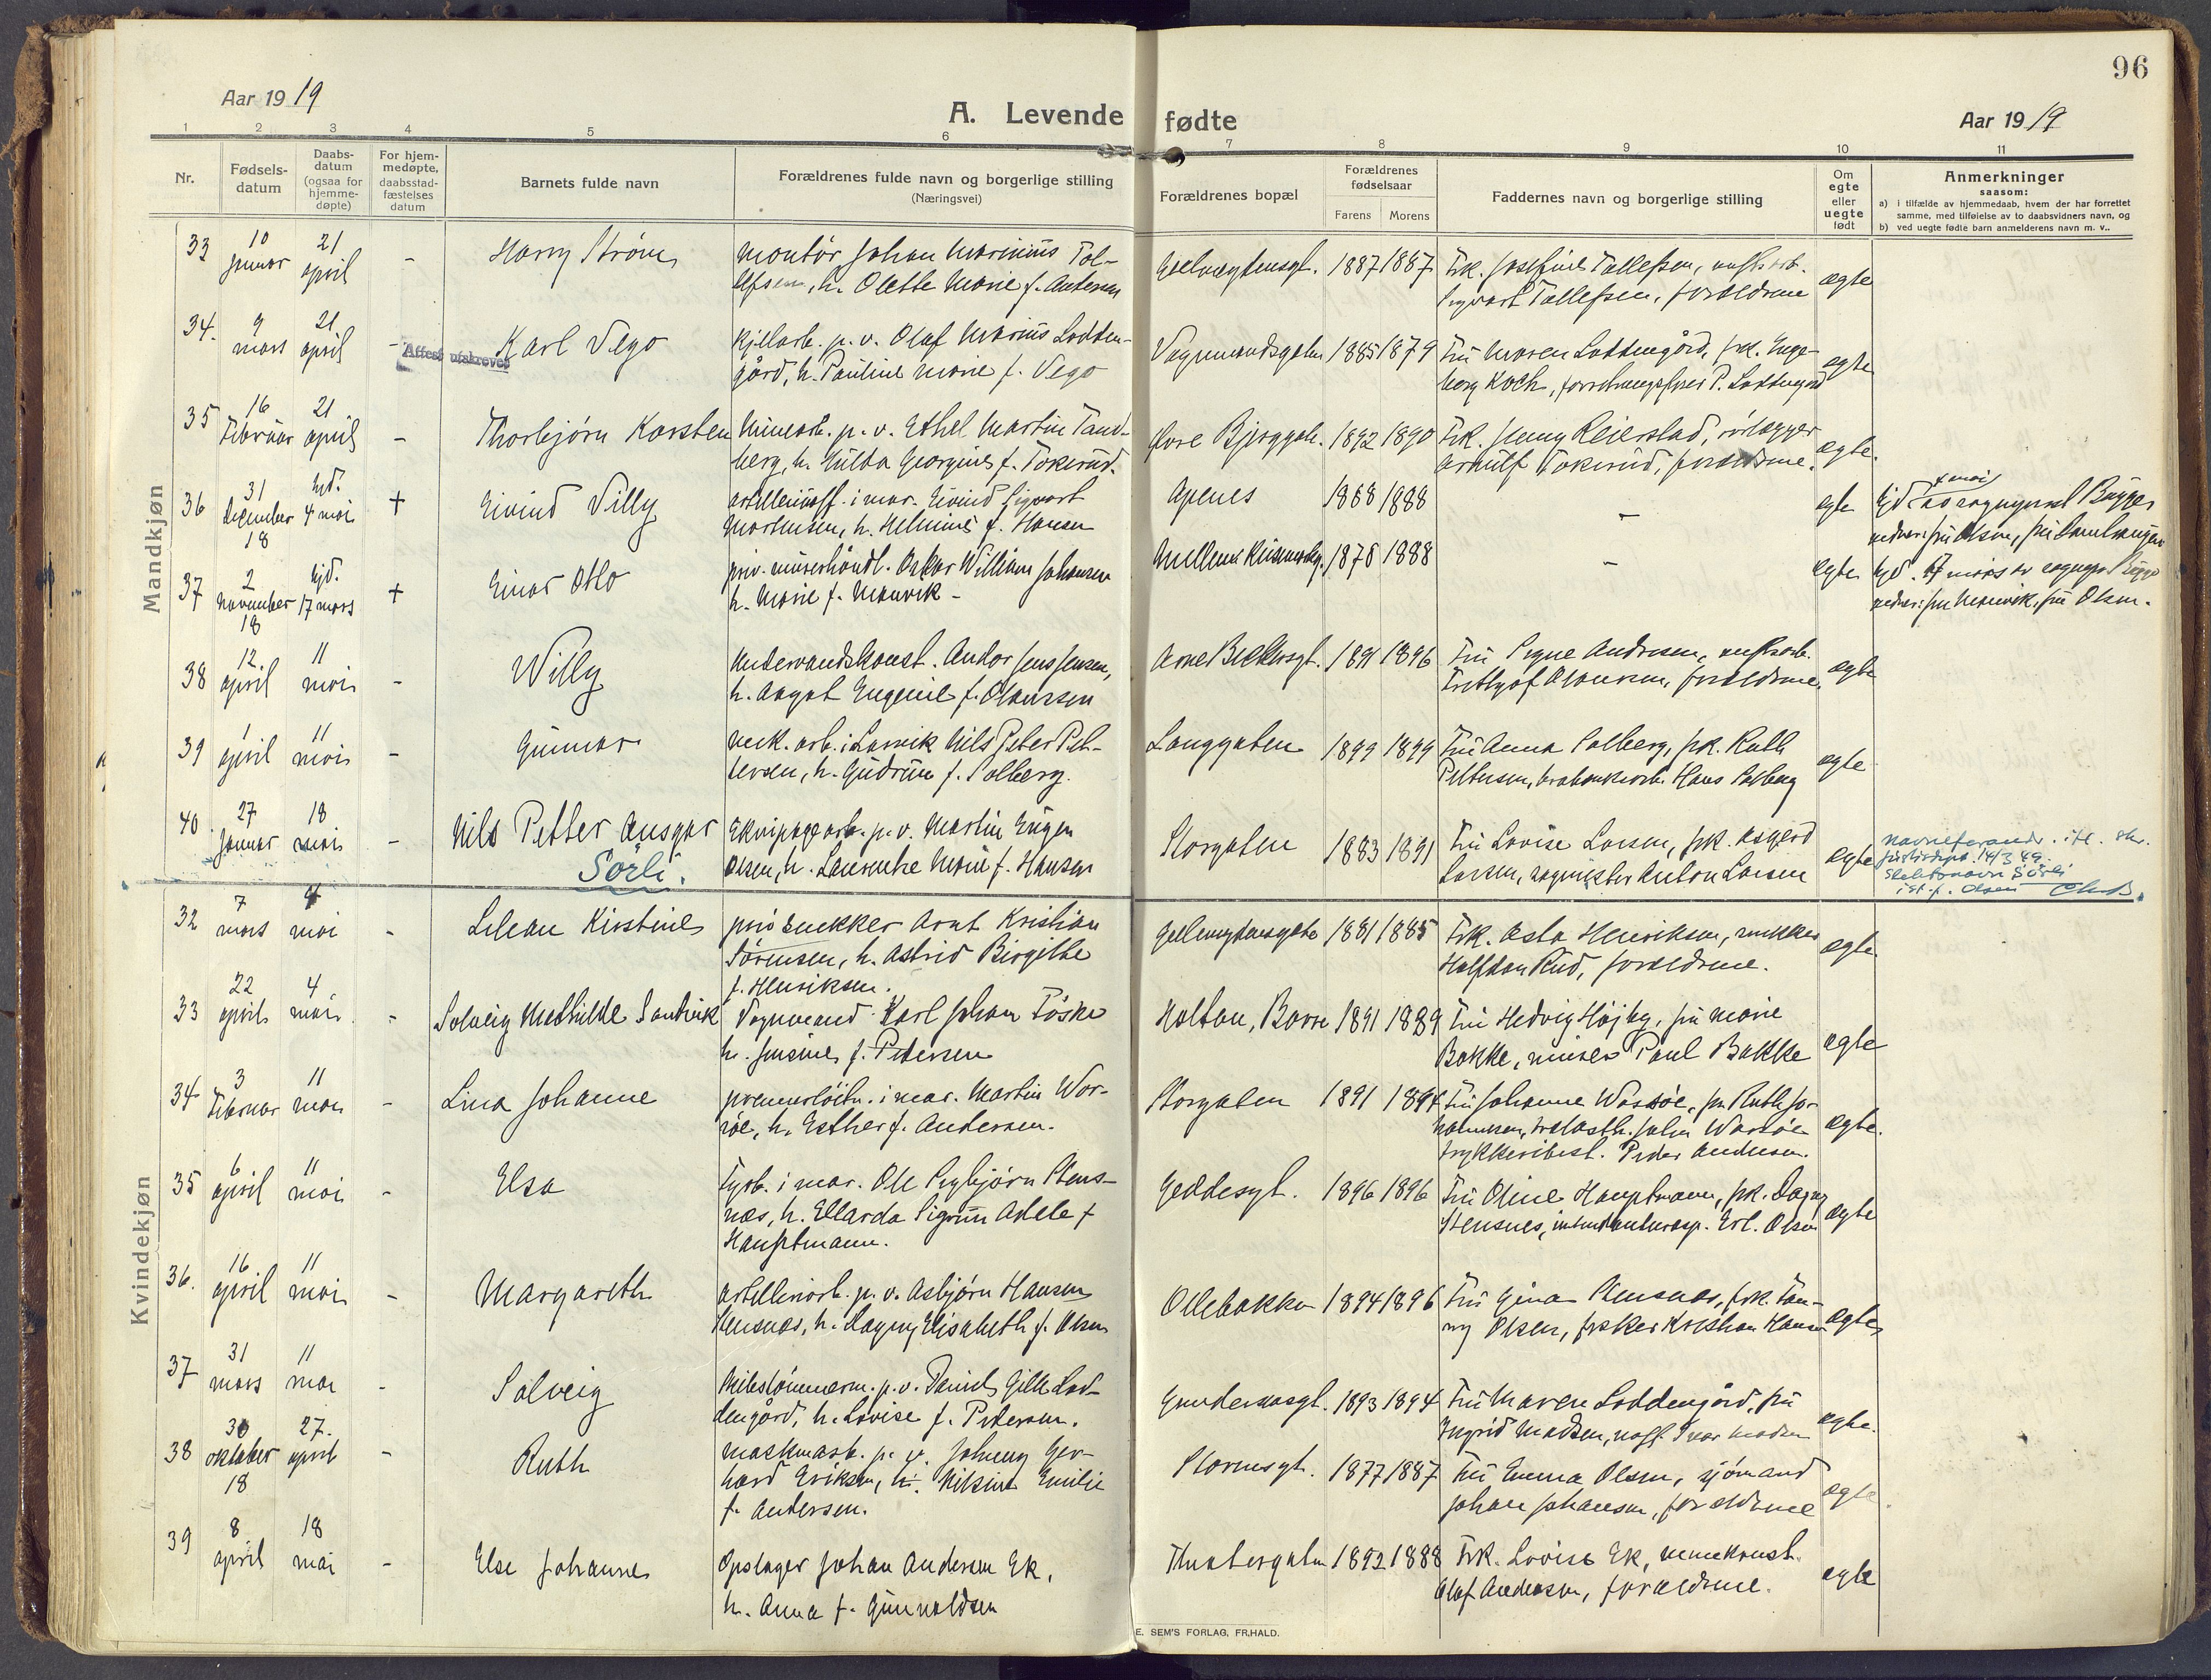 96
Aar 1919
A. Levende fødte
Aar 1919
1 2 3 4 5 6 7 8 9 10 11
Nr.
Fødsels-
datum
Daabs-
datum
(ogsaa for
hjemme-
døpte)
For hjem-
medøpte,
daabsstad-
fæstelses
datum
Barnets fulde navn
Forældrenes fulde navn og borgerlige stilling
(Næringsvei)
Forældrenes bopæl
Forældrenes
fødselsaar
Farens Morens
Faddernes navn og borgerlige stilling
Om
egte
eller
uegte
født
Anmerkninger
saasom:
a) i tilfælde av hjemmedaab, hvem der har forrettet
samme, med tilføielse av to daabsvidners navn, og
b) ved uegte fødte barn anmelderens navn m. v..
Mandkjøn
33 10 januar 21 april - Harry Strøm
montør Johan Marinius Tol-
lefsen, h. Olette Marie f. Andersen
1887 1887
Frk. Josefine Tollefsen,
Sigvart Tollefsen, forældrene
egte
34. 9 mars 21 april - Karl Vego
Attest utskrevet
kjelarb. p. v. Olaf Marius Lodden-
gård, h. Pauline Marie f. Vego
Vognmandsgaten 1885 1879
Fru Maren Loddengård, frk. Inge-
borg Koch, P. Loddengård
egte
35 16 Februar 21 april - Thorbjørn Karsten
Minearb. p. v. Ethel Martin Tand-
berg, h. Hulda Georgine f. Tokerud.
Øvre Bjerggate. 1892 1890
Frk. Jenny Reierstad, rørlægger
Arnulf Tokerud, forældrene.
egte.
36 31 december 18 hjd. 4 mai + Eivind Villy
i mar. Eivind Sigvart
Mortensen, h. Helmine f. Hansen
Apenes 1888 1888
-
egte
4 mai
Hjd av sogneprest Bugge
37 2 november 18 hjd. 17 mars + Einar Otto
priv. Oskar William Johansen
h. Marie f. Manvik -
1878 1888
-
egte
hjd. 17 mars av sognepr Bugge
vidner: fru Manvik, fru Olsen.
38 12. april 11 mai - Willy
Undervandskonst. Andor Jens Jensen,
h. Aagot Eugenie f. Olaussen
Arne Bekkersgt. 1891 1896
Fru Signe Andresen,
Frithjof Olaussen, forældrene.
egte
39 1 april 11 mai - Gunnar
verk. arb. i Larvik Nils Peter Pet-
tersen, h. Gudrun f. Solberg.
Langgaten 1899 1899
Fru Anna Solberg, frk. Ruth
Pettersen, Hans Solberg
egte
40 27 januar 18 mai - Nils Petter Ansgar
Sørli.
Ekvipagearb. p. v. Martin Eugen
Olsen, h. Laurentze Marie f. Hansen
Storgaten 1883 1891
Fru Lovise Larsen, frk. Asgerd
Larsen, Anton Larsen
egte
navneforandr. itl. skr.
justisdept. 14/3 49.
Slektsnavn Sørli
ist. f. Olsen
Kvindekjøn
32 7 mars 4 mai - Lilean Kirstine
snekker Arnt Kristian
Sørensen, h. Astrid Birgitte
f. Henriksen.
1881 1885
Frk. Asta Henriksen, snekker
Halfdan Rud, forældrene.
egte
33 22 april 4 mai - Solveig Mathilde Sandvik
Vognmand Karl Johan Føske
h. Jensine f. Petersen
Holtan, Borre 1891 1889
Fru Hedvig Højby, fru Marie
Bakke, minør Paul Bakke
egte
34 3 Februar 11 mai - Lina Johanne
premierløitn. i mar. Martin War-
søe, h. Esther f. Andersen.
Storgaten 1891 1894
Fru Johanne Warsøe, fru Ruth Jo-
hannesen, John Warsøe
trykkeribest. Peder Andersen.
egte.
35 6 april 11 mai - Elsa
Fyrb. i mar. Ole Sigbjørn Stens-
nes, h. Ellarda Sigrun Adele f
Hauptmann.
Geddesgt. 1896 1896
Fru Oline Hauptmann, frk. Dagny
Stensnes, Erl. Olsen
egte
36. 16 april 11 mai - Margareth
artilleriarb. p. v. Asbjørn Hansen
Stensnes, h. Dagny Elisabeth f. Olsen
Ollebakken 1894 1896
Fru Gina Stensnes, frk. Fan-
ny Olsen, fisker Kristian Hansen
egte
37 31 mars 11 mai - Solveig
p. v. Daniel Gill Lod-
dengård, h. Lovise f. Petersen.
Gundersøsgt. 1893 1894
Fru Maren Loddengård, fru
Ingrid Madsen, Ivar Madsen
egte.
38 30 oktober 18 27. april - Ruth
maskinarb. p. v. Johnny Ger-
hard Eriksen, h. Nilsine Emilie
f. Andersen.
1877 1887
Fru Emma Olsen, sjømand
Johan Johansen, forældrene
egte.
39 8 april 18 mai - Else Johanne
Opslager Johan Andersen Ek,
h. Anna f. Gunnaldsen
1892 1888
Frk. Lovise Ek, minekonst.
Olaf Andersen, forældrene.
egte
E. SEM'S FORLAG, FR.HALD.